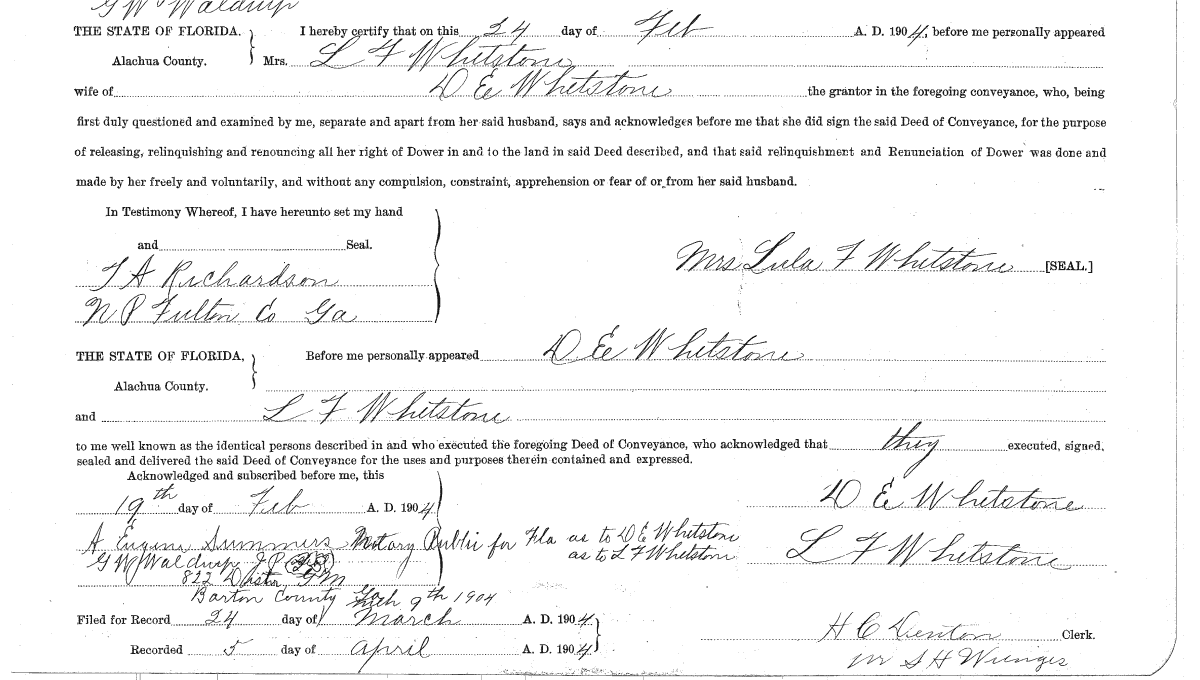 G W Waldrup
THE STATE OF FLORIDA. I hereby certify that on this 24 day of Feb A. D. 1904, before me personally appeared
Alachua County. Mrs. L F Whetstone
wife of D E Whetstone the grantor in the foregoing conveyance, who, being
first duly questioned and examined by me, separate and apart from her said husband, says and acknowledges before me that she did sign the said Deed of Conveyance, for the purpose
of releasing, relinquishing and renouncing all her right of Dower in and to the land in said Deed described, and that said relinquishment and Renunciation of Dower was done and
made by her freely and voluntarily, and without any compulsion, constraint, apprehension or fear of or from her said husband.
In Testimony Whereof, I have hereunto set my hand
and Seal.
Mrs Lula F Whetstone [SEAL.]
T A Richardson
N P Fulton Co Ga
THE STATE OF FLORIDA, Before me personally appeared D E Whetstone
Alachua County.
and L F Whetstone
to me well known as the identical persons described in and who executed the foregoing Deed of Conveyance, who acknowledged that they executed, signed,
sealed and delivered the said Deed of Conveyance for the uses and purposes therein contained and expressed.
Acknowledged and subscribed before me, this
19th day of Feb A. D. 1904
D E Whetstone
A Eugene Summers Notary Public for Fla as to D E Whetstone
G W Waldrup J P as to L F Whetstone
L F Whetstone
822 G M
Barton County 9th 1904
Filed for Record 24 day of March A. D. 1904
H C Denton Clerk.
Recorded 5 day of April A. D. 1904
S H Wienges